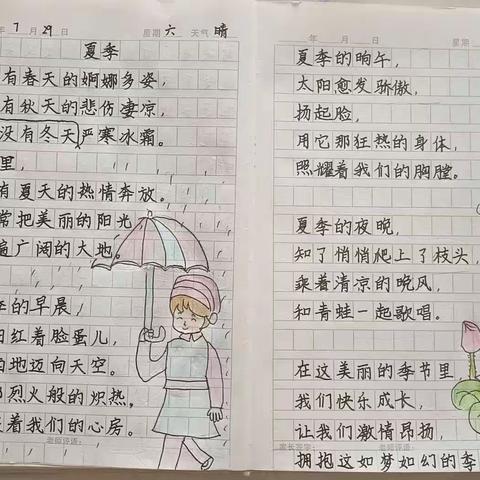 年 7 月 29 日 星期 六 天气 晴
夏季
有春天的婀娜多姿，
有秋天的悲伤凄凉，
没有冬天严寒冰霜。
里，
有夏天的热情奔放。
常把美丽的阳光
遍广阔的大地。
的早晨，
红着脸蛋儿，
地迈向天空。
烈火般的炽热，
着我们的心房。
老师评语：
年 月 日 星期
夏季的晌午，
太阳愈发骄傲，
扬起脸，
用它那狂热的身体，
照耀着我们的胸膛。
夏季的夜晚，
知了悄悄爬上了枝头，
乘着清凉的晚风，
和青蛙一起歌唱。
在这美丽的季节里，
我们快乐成长，
让我们激情昂扬，
家长签字： 老师评语：
拥抱这如梦如幻的季